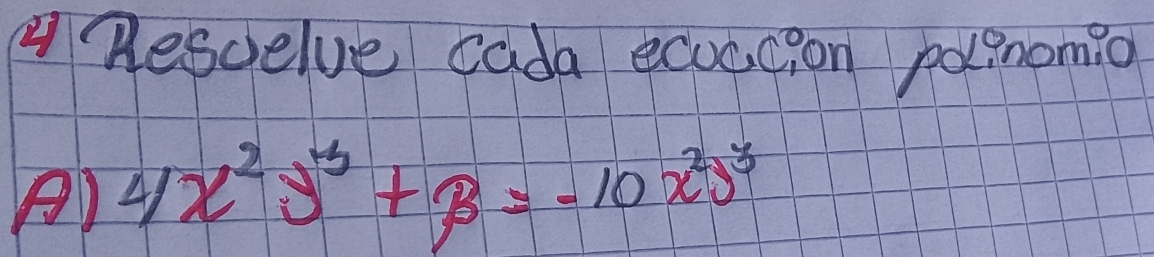 4 Resuelve cada ecuación polinomio
A) 4x²y³ + B = -10x²y³